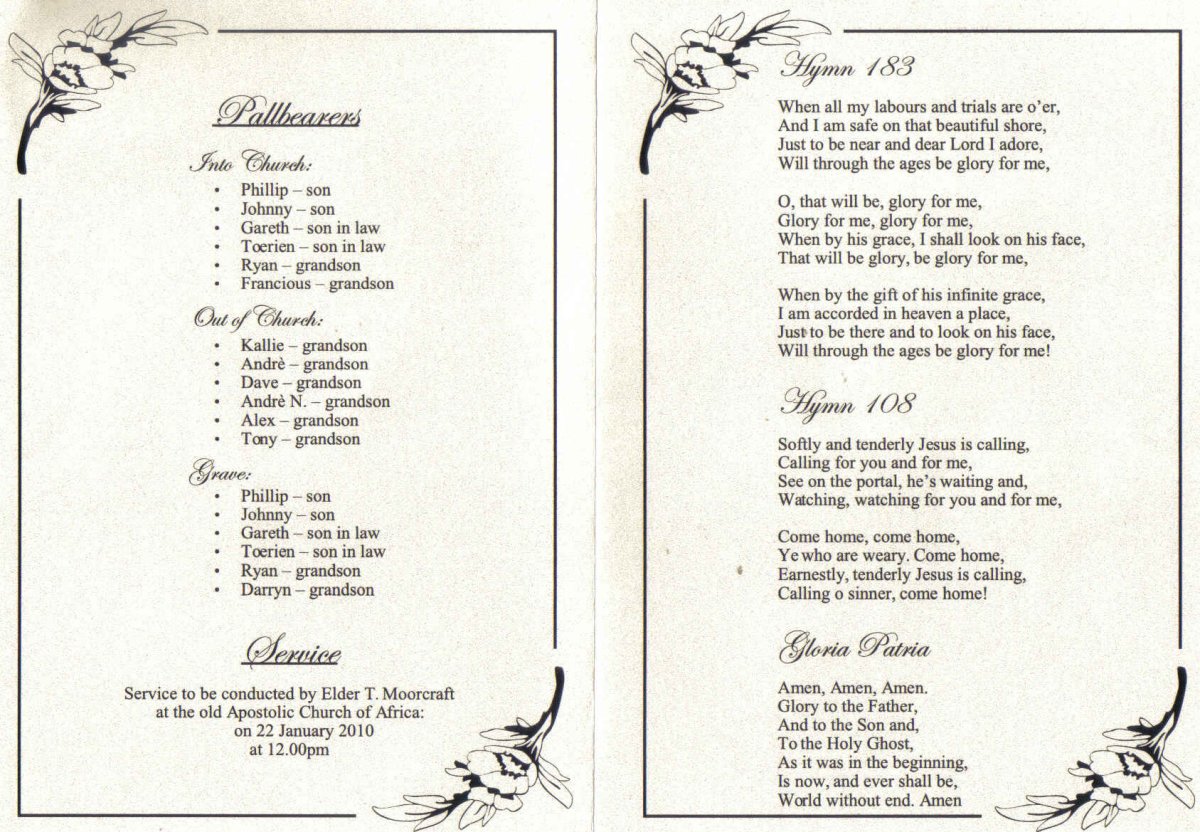 Pallbearers
Into Church:
• Phillip – son
• Johnny – son
• Gareth – son in law
• Toerien – son in law
• Ryan – grandson
• Francious – grandson
Out of Church:
• Kallie – grandson
• Andrè – grandson
• Dave – grandson
• Andrè N. – grandson
• Alex – grandson
• Tony – grandson
Grave:
• Phillip – son
• Johnny – son
• Gareth – son in law
• Toerien – son in law
• Ryan – grandson
• Darryn – grandson
Service
Service to be conducted by Elder T. Moorcraft
at the old Apostolic Church of Africa:
on 22 January 2010
at 12.00pm
Hymn 183
When all my labours and trials are o’er,
And I am safe on that beautiful shore,
Just to be near and dear Lord I adore,
Will through the ages be glory for me,
O, that will be, glory for me,
Glory for me, glory for me,
When by his grace, I shall look on his face,
That will be glory, be glory for me,
When by the gift of his infinite grace,
I am accorded in heaven a place,
Just to be there and to look on his face,
Will through the ages be glory for me!
Hymn 108
Softly and tenderly Jesus is calling,
Calling for you and for me,
See on the portal, he’s waiting and,
Watching, watching for you and for me,
Come home, come home,
Ye who are weary. Come home,
Earnestly, tenderly Jesus is calling,
Calling o sinner, come home!
Gloria Patria
Amen, Amen, Amen.
Glory to the Father,
And to the Son and,
To the Holy Ghost,
As it was in the beginning,
Is now, and ever shall be,
World without end. Amen